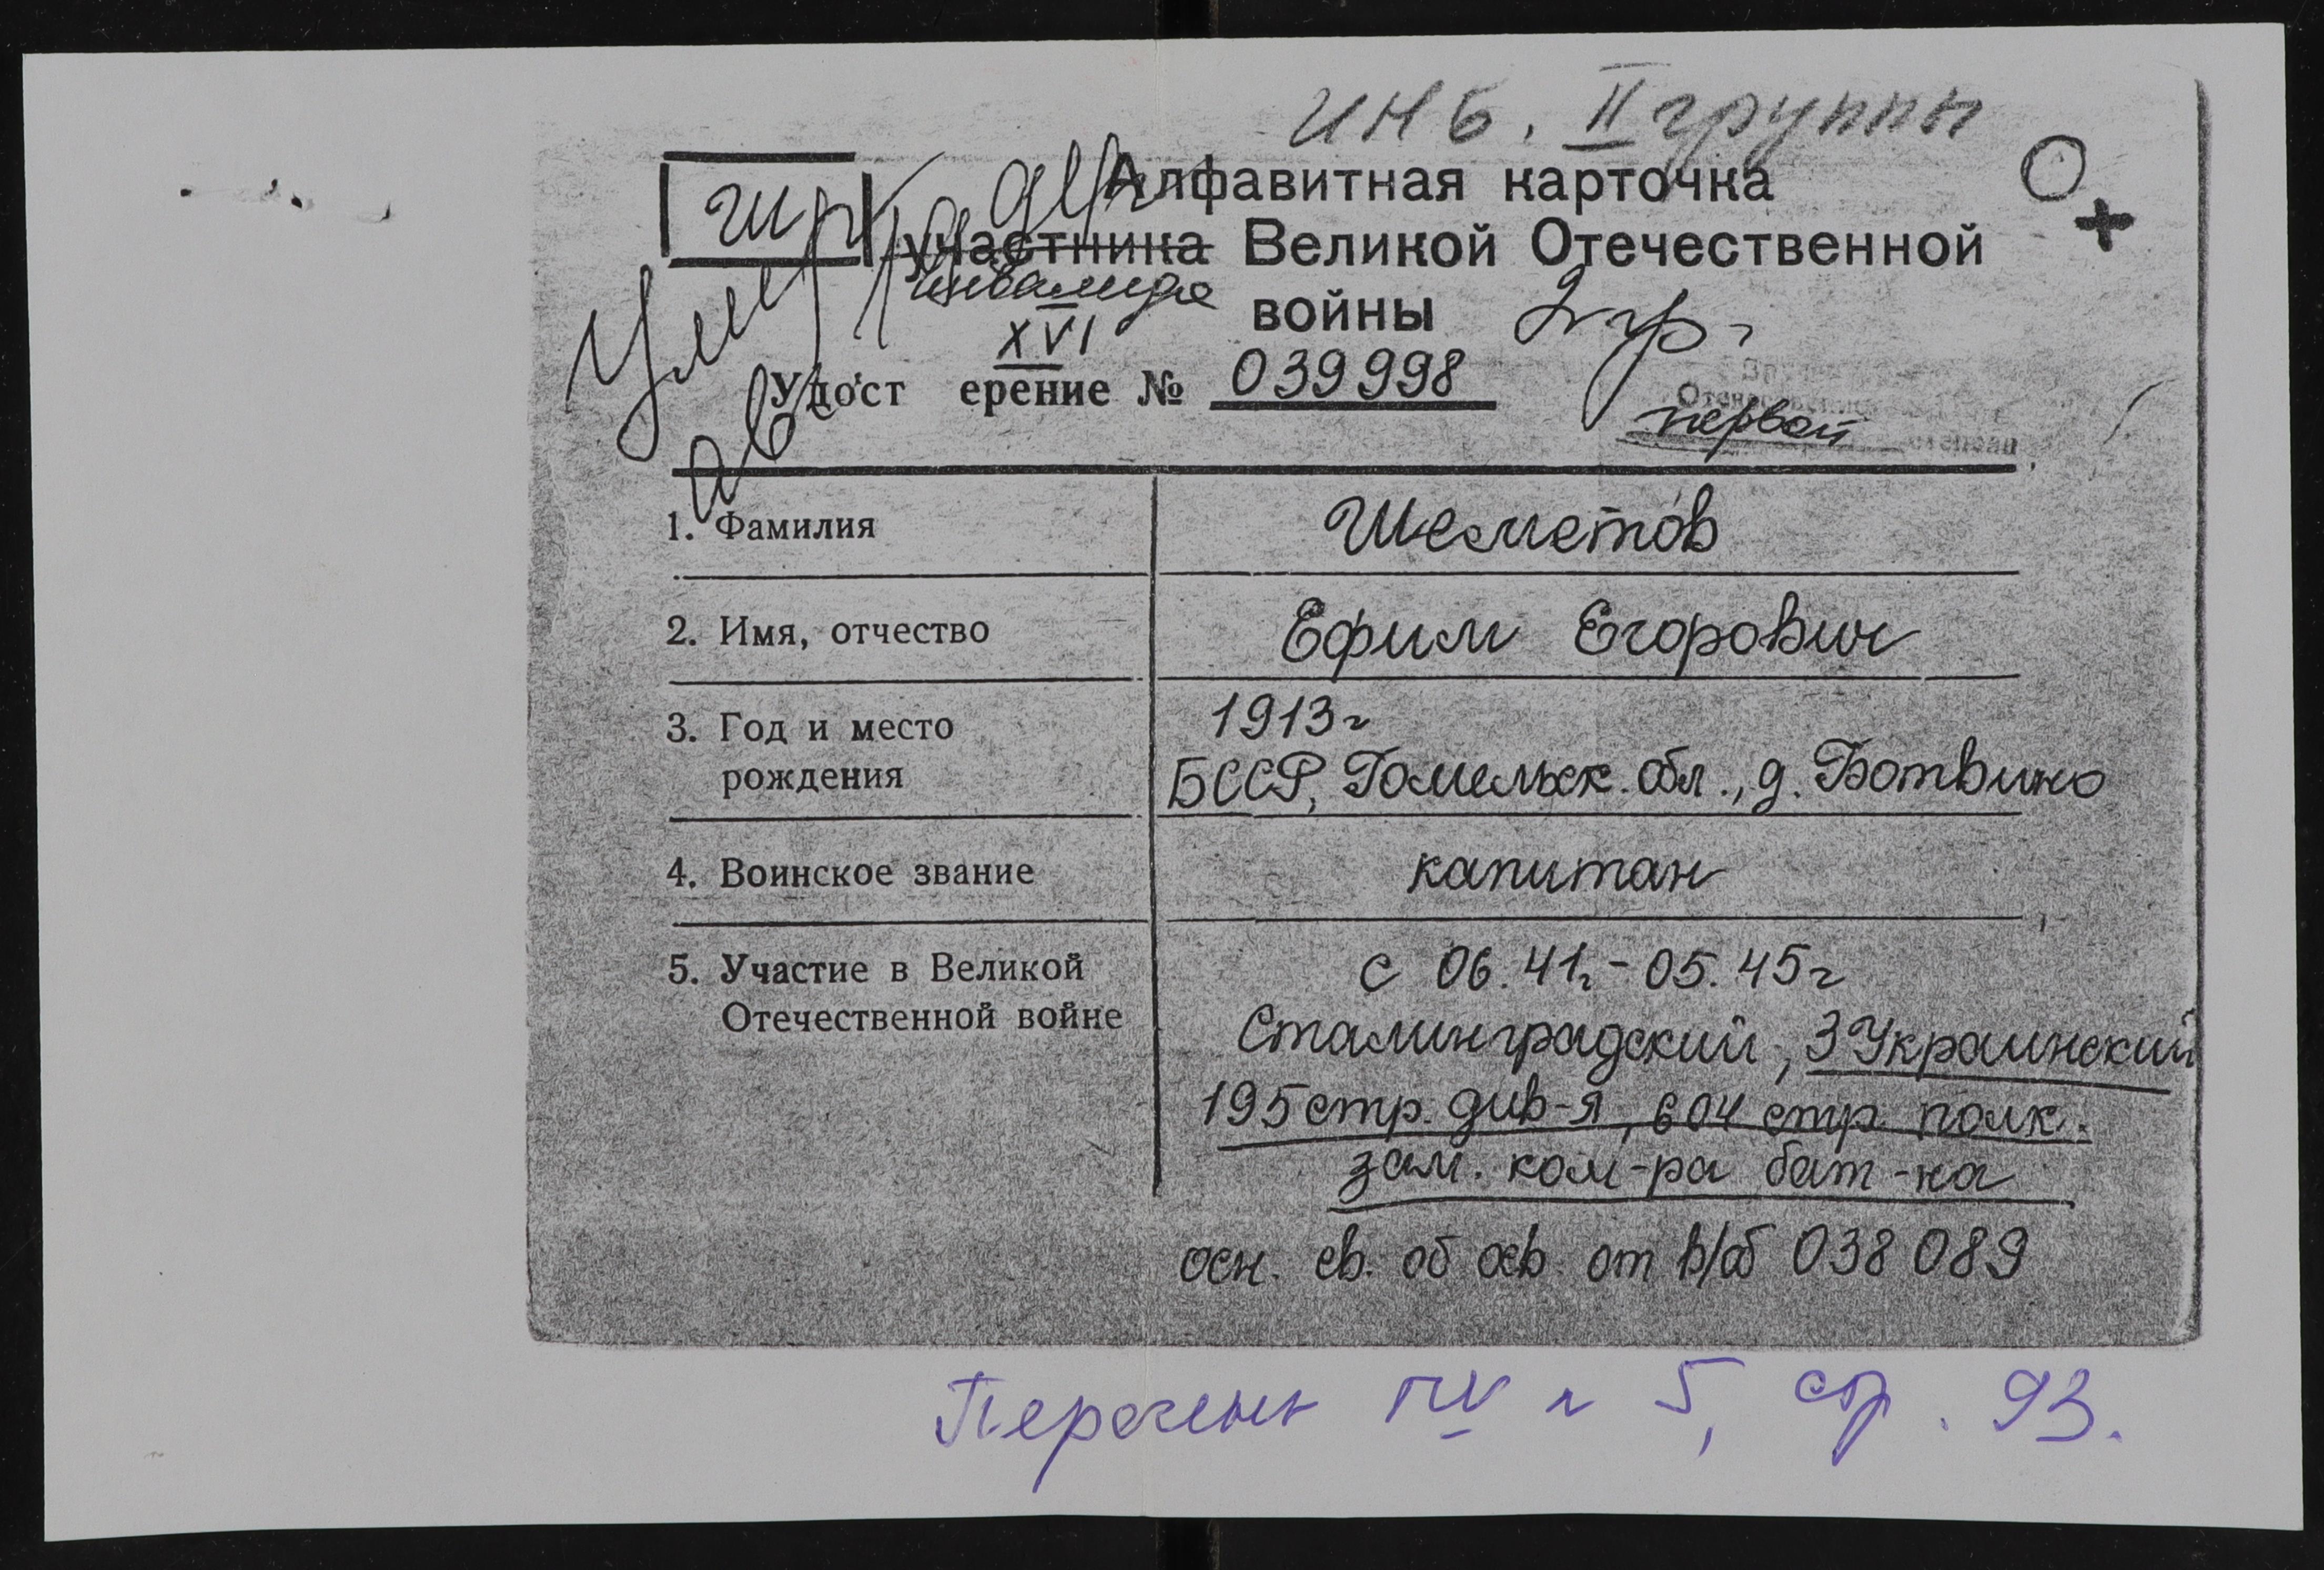 инв. II группы
Алфавитная карточка
участника Великой Отечественной
инвалида
войны 2 гр.
XVI
Удост ерение № 039998
первой
Умер
1. Фамилия Шеметов
2. Имя, отчество Ефим Егорович
3. Год и место рождения 1913г
БССР, Гомельск. обл., д. Ботвино
4. Воинское звание капитан
5. Участие в Великой Отечественной войне с 06.41г - 05.45г
Сталинградский, 3 Украинский
195 стр. див-я, 604 стр. полк.
зам. ком-ра бат-на
осн. св. об осв. от в/об 038089
Перечень ГУ № 5, стр. 93.